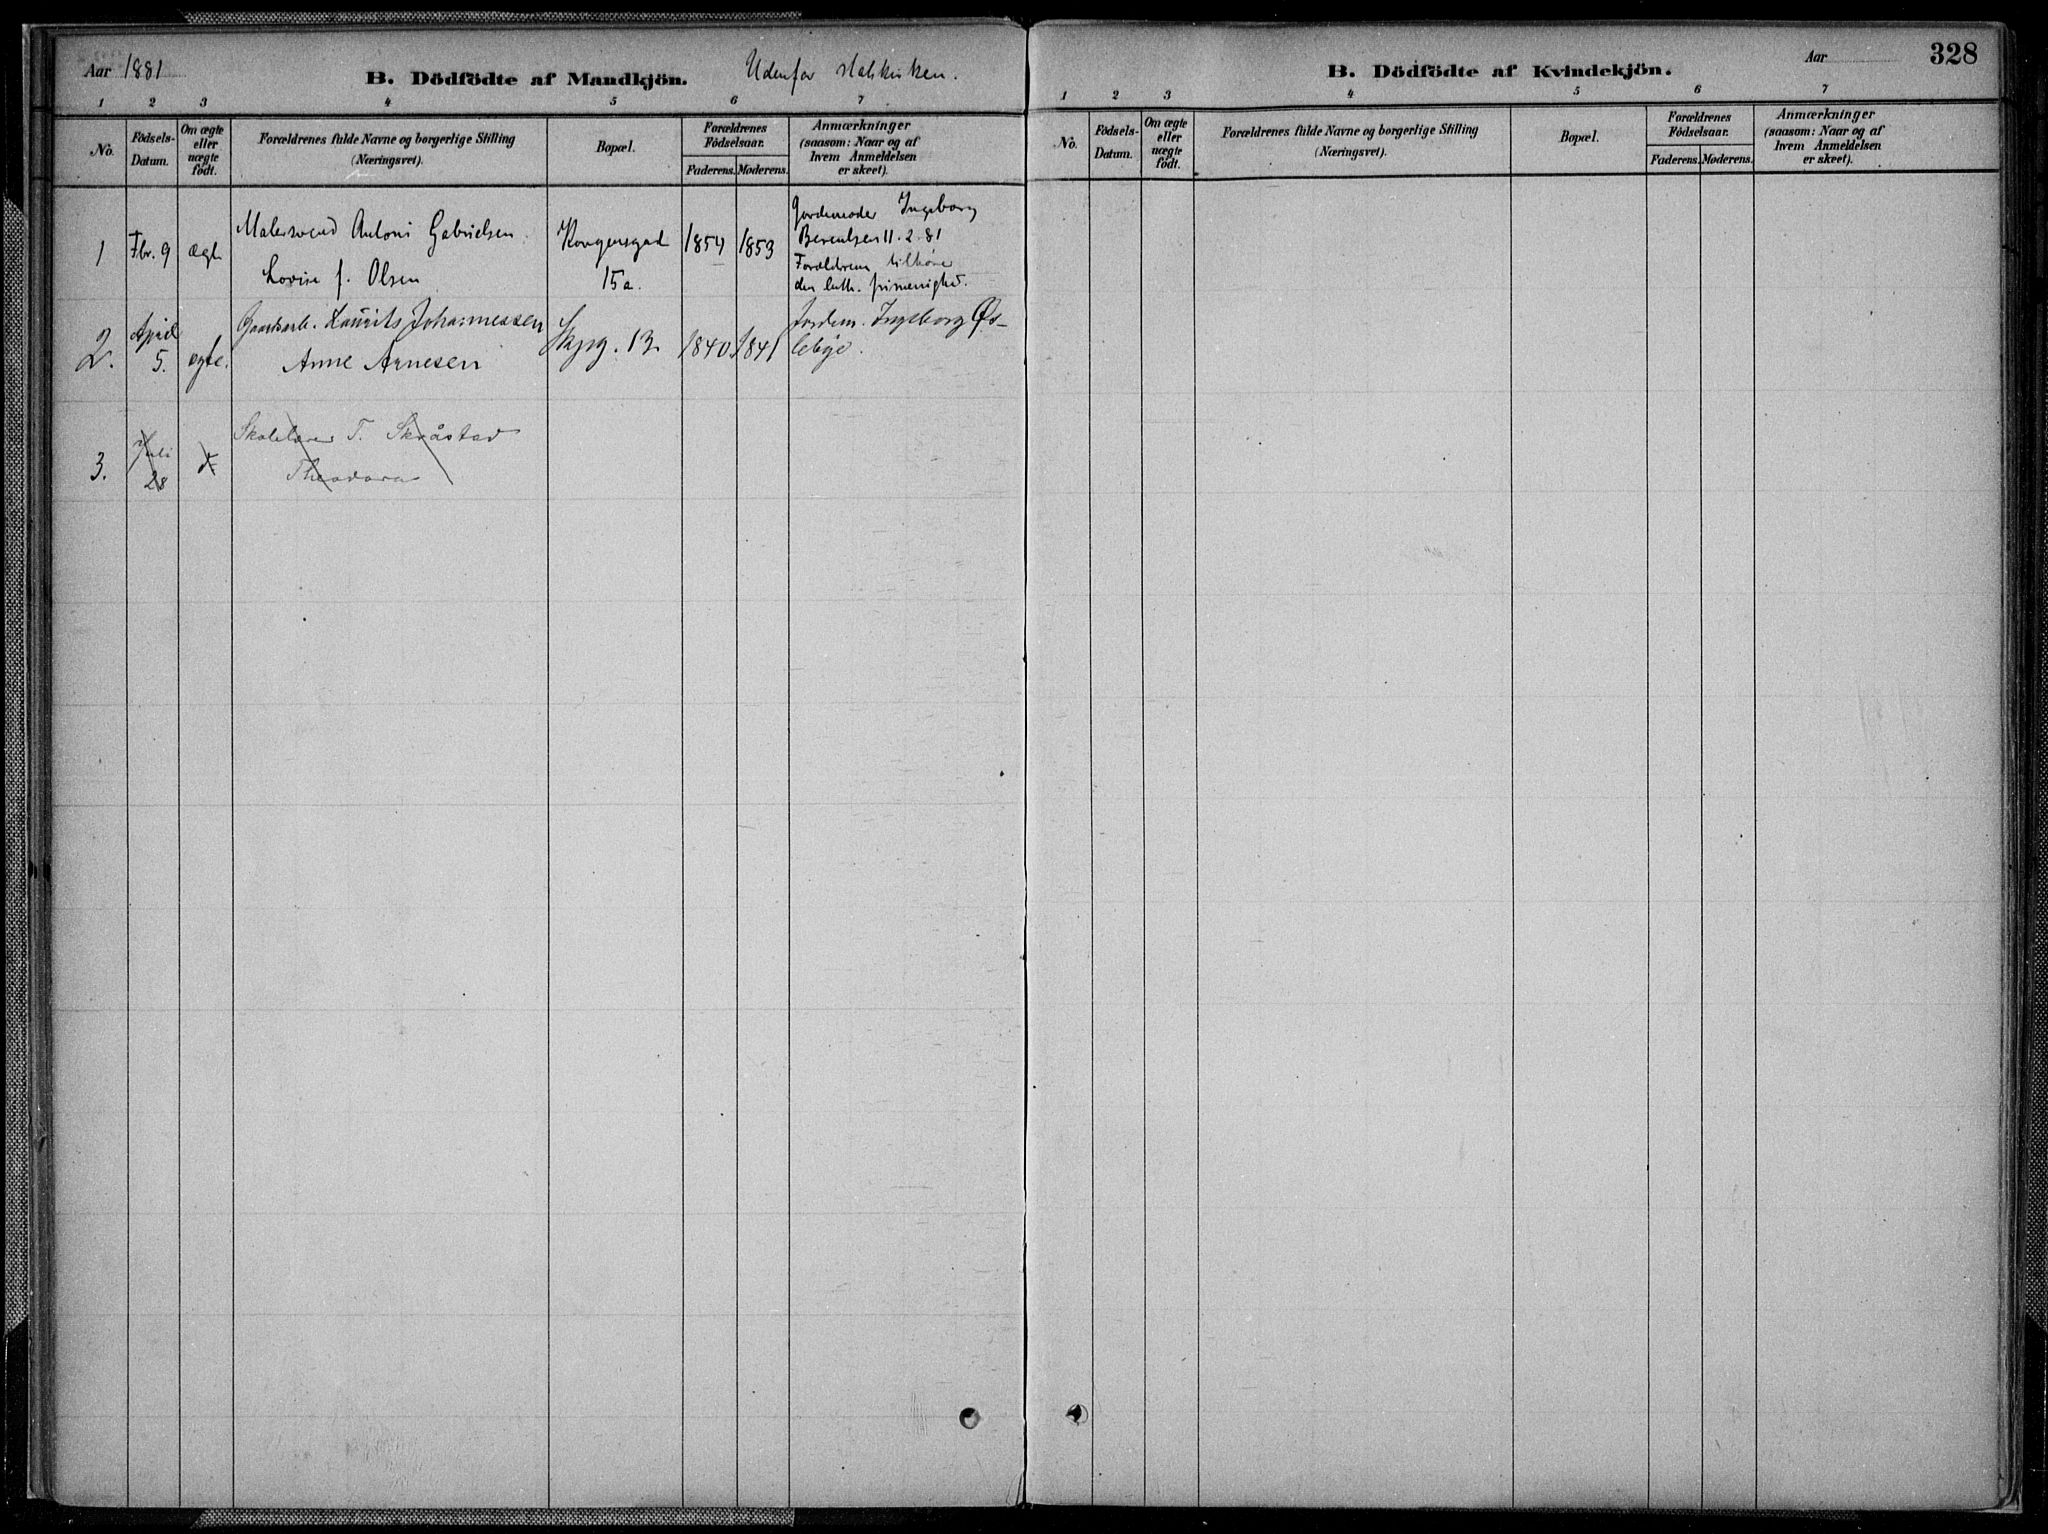 Aar 1881
B. Dödfödte af Mandkjön.
Udenfor statskirken.
1 2 3 4 5 6 7
No.
Födsels-Datum.
Om ægte eller uægte födt.
Forældrenes fulde Navne og borgerlige Stilling
(Næringsvei).
Bopæl.
Forældrenes Födselsaar.
Faderens. Moderens.
Anmærkninger
(saasom: Naar og af
hvem Anmeldelsen
er skeet).
1 Fbr. 9 ægte
Malersvend Antoni Gabrielsen
Lovise f. Olsen
Kongensgad
15a.
1854 1853
Jordemoder Ingeborg
Berentsen 11.2.81
Forældrene tilhøre
den luth. frimenighed.
2. April 5. ægte.
Gaardarb. Laurits Johannessen
Anne Arnesen
13
1840 1841
Jordem. Ingeborg Øs-
lebye.
3. Juli 28
Skolelærer T. Skråstad
Theodora
Aar
328
B. Dödfödte af Kvindekjön.
1 2 3 4 5 6 7
No.
Födsels-Datum.
Om ægte eller uægte födt.
Forældrenes fulde Navne og borgerlige Stilling
(Næringsvei).
Bopæl.
Forældrenes Födselsaar.
Faderens. Moderens.
Anmærkninger
(saasom: Naar og af
hvem Anmeldelsen
er skeet).